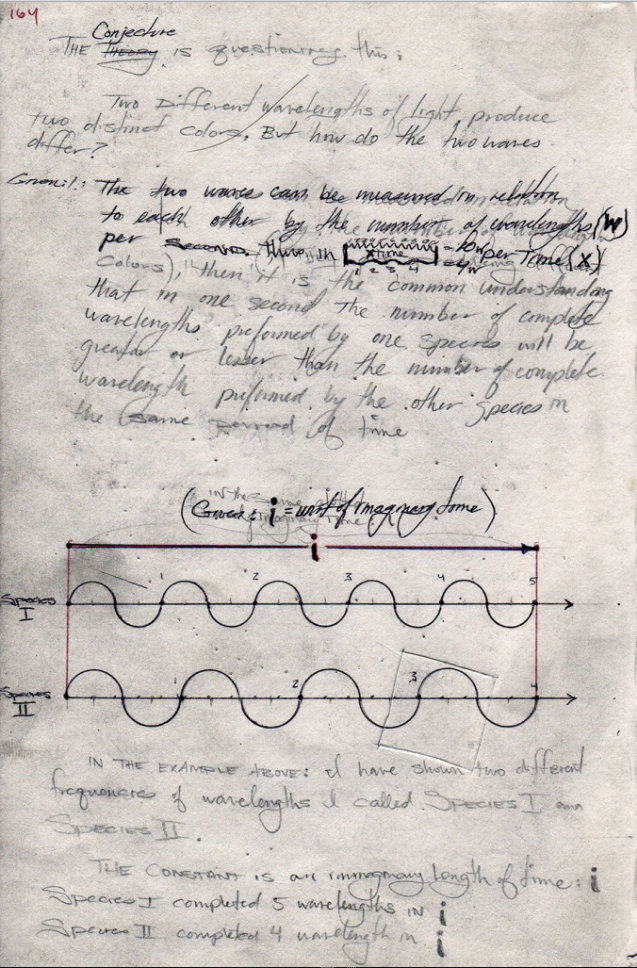 164
Conjecture
THE THEORY is questioning this;
Two Different wavelengths of light, produce
two distinct colors, But how do the two waves
differ?
Given:1.: The two waves can be measured in relation
to each other by the number of wavelengths (W)
per second. thus in X time = 10w per Time (X)
1 2 3 4 = 4w
colors), then it is the common understanding
that in one second the number of complete
wavelengths preformed by one species will be
greater or lesser than the number of complete
wavelength preformed by the other species in
the same period of time
i = unit of imaginary time)
i
Species
I
1 2 3 4 5
Species
II
1 2 3
IN THE EXAMPLE ABOVE: I have shown two different
frequencies of wavelengths I called SPECIES I and
SPECIES II.
THE CONSTANT is an immginary Length of time: i
Species I completed 5 wavelengths in i
Species II completed 4 wavelength in i